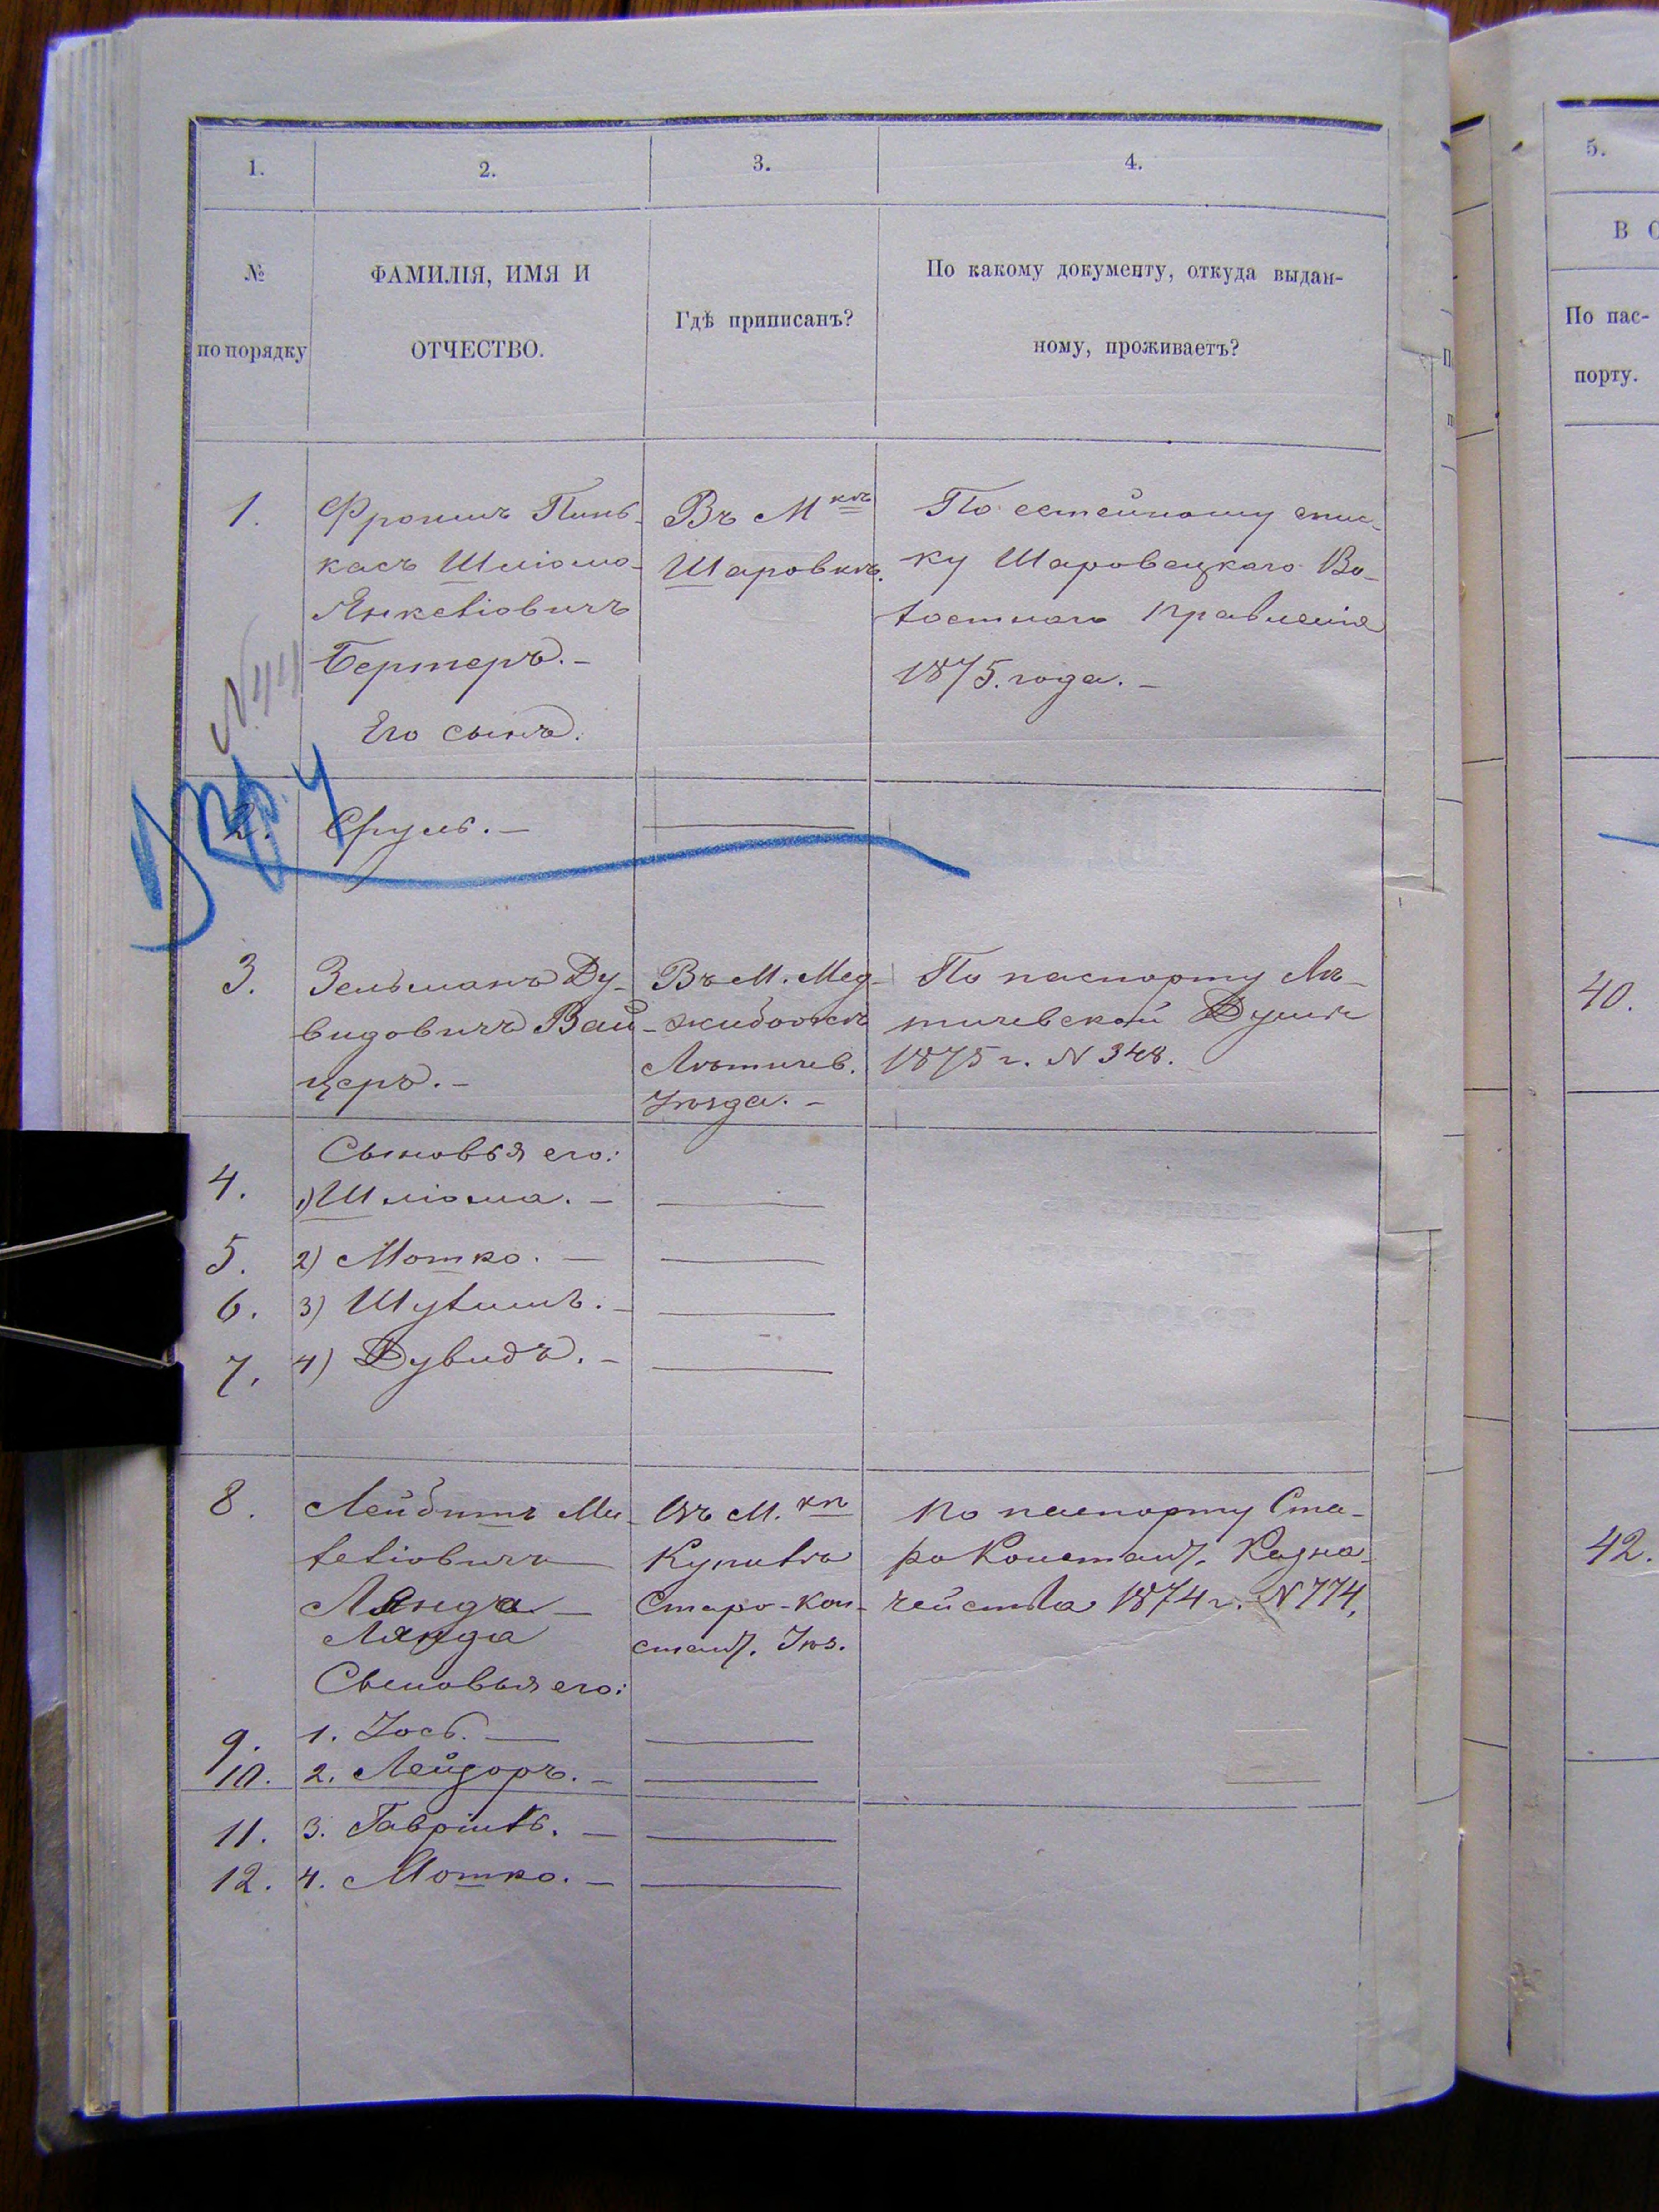 1. 2. 3. 4.
№
по порядку
ФАМИЛІЯ, ИМЯ И
ОТЧЕСТВО.
Гдѣ приписанъ?
По какому документу, откуда выдан-
ному, проживаетъ?
1.
Фроимъ Пинь-
касъ Шліома-
Янкеліовичъ
Бертеръ. -
Его сынъ.
Въ М кѣ
Шаровкѣ.
По семейному спис-
ку Шаровецкаго Во-
лостнаго правленія
1875. года. -
2. Сруль. -
3.
Зельманъ Ду-
видовичъ Вай-
церъ. -
Въ М. Мед-
жибожѣ
Лѣтичев.
Уѣзда. -
По паспорту Лѣ-
тичевской Думы
1875 г. N 348.
Сыновья его:
4. 1) Шліома. -
5. 2) Мотко. -
6. 3) Шулимъ. -
7. 4) Дувидъ. -
8.
Лейбишъ Ми-
леліовичъ
Лянда -
Лянда
Сыновья его:
Въ М. кѣ
Купилѣ
Старо-кон-
стант. Уѣз.
По паспорту Ста-
роконстант. Казна-
чейства 1874 г. N 774.
9. 1. Іось. -
10. 2. Лейзоръ. -
11. 3. Гавріиль. -
12. 4. Мотко. -
5.
В С
По пас-
порту.
40.
42.